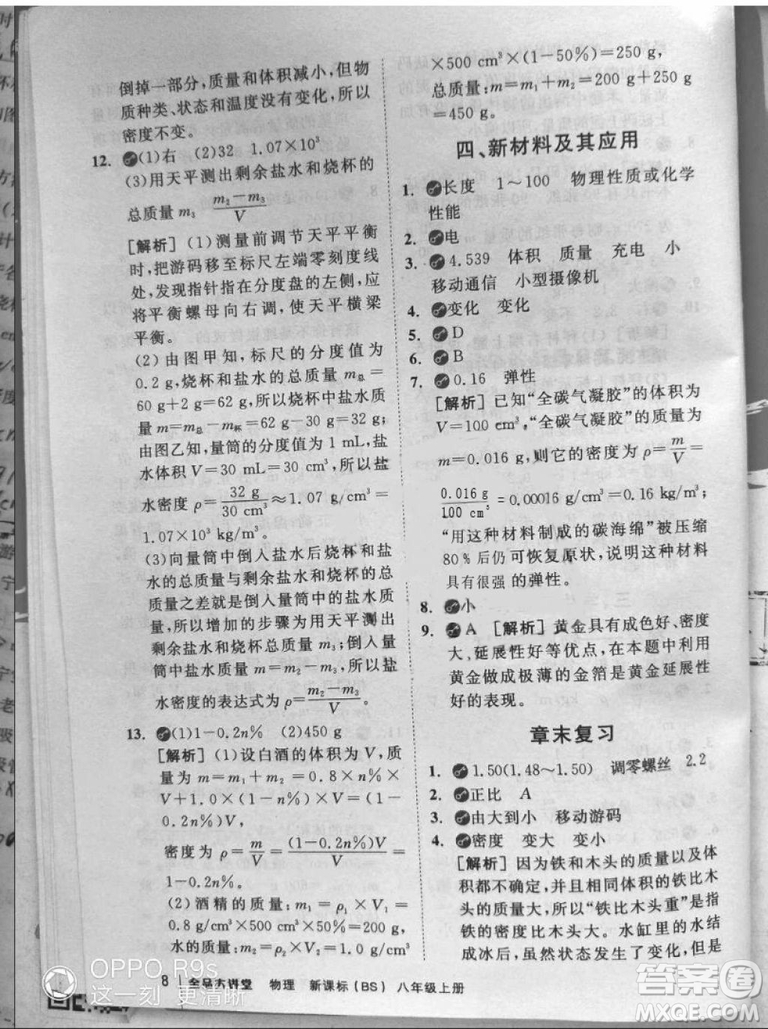 倒掉一部分，质量和体积减小，但物
质种类、状态和温度没有变化，所以
密度不变。
12. (1)右 (2)32 1.07×10³
(3)用天平测出剩余盐水和烧杯的
总质量m₃ (m₂−m₃)/V
[解析] (1)测量前调节天平平衡
时，把游码移至标尺左端零刻度线
处，发现指针指在分度盘的左侧，应
将平衡螺母向右调，使天平横梁
平衡。
(2)由图甲知，标尺的分度值为
0.2 g，烧杯和盐水的总质量m总=
60 g+2 g=62 g，所以烧杯中盐水
质量m=m总−m杯=62 g−30 g=32 g；
由图乙知，量筒的分度值为1 mL，盐
水体积V=30 mL=30 cm³，所以盐
水密度ρ=32 g/30 cm³≈1.07 g/cm³=
1.07×10³ kg/m³。
(3)向量筒中倒入盐水后烧杯和水
的总质量与剩余盐水和烧杯的总
质量之差就是倒入量筒中的盐水质
量，所以增加的步骤为用天平测出
剩余盐水和烧杯总质量m₃；倒入量
筒中盐水质量m=m₂−m₃，所以盐
水密度的表达式为ρ=(m₂−m₃)/V。
13. (1)1−0.2n% (2)450 g
[解析] (1)设白酒的体积为V，质
量为m=m₁+m₂=0.8×n%×
V+1.0×(1−n%)V=(1−
0.2n%)V，
密度为ρ=m/V=(1−0.2n%)V/V=
1−0.2n%。
(2)酒精的质量：m₁=ρ₁×V₁=
0.8 g/cm³×500 cm³×50%=200 g，
8 全品大讲堂 物理 新课标（BS） 八年级上册
×500 cm³×(1−50%)=250 g，
总质量：m=m₁+m₂=200 g+250 g
=450 g。
四、新材料及其应用
1. 长度 1～100 物理性质或化学
性能
2. 电
3. 4.539 体积 质量 充电 小
移动通信 小型摄像机
4. 变化 变化
5. D
6. B
7. 0.16 弹性
[解析] 已知“全碳气凝胶”的体积为
V=100 cm³，“全碳气凝胶”的质量为
m=0.016 g，则它的密度为ρ=m/V=
0.016 g/100 cm³=0.00016 g/cm³=0.16 kg/m³；
“用这种材料制成的碳海绵”被压缩
80%后仍可恢复原状，说明这种材料
具有很强的弹性。
8. 小
9. A [解析] 黄金具有成色好、密度
大、延展性好等优点，在本题中利用
黄金做成极薄的金箔是黄金延展性
好的表现。
章末复习
1. 1.50(1.48～1.50) 调零螺丝 2.2
2. 正比 A
3. 由大到小 移动游码
4. 密度 变大 变小
[解析] 因为铁和木头的质量以及体
积都不确定，并且同体积的铁比木
头的质量大，所以“铁比木头重”是指
铁的密度比木头大。水缸里的水结
成冰后，虽然状态发生了变化，但
OPPO R9s
这一刻 更清晰
答案圈